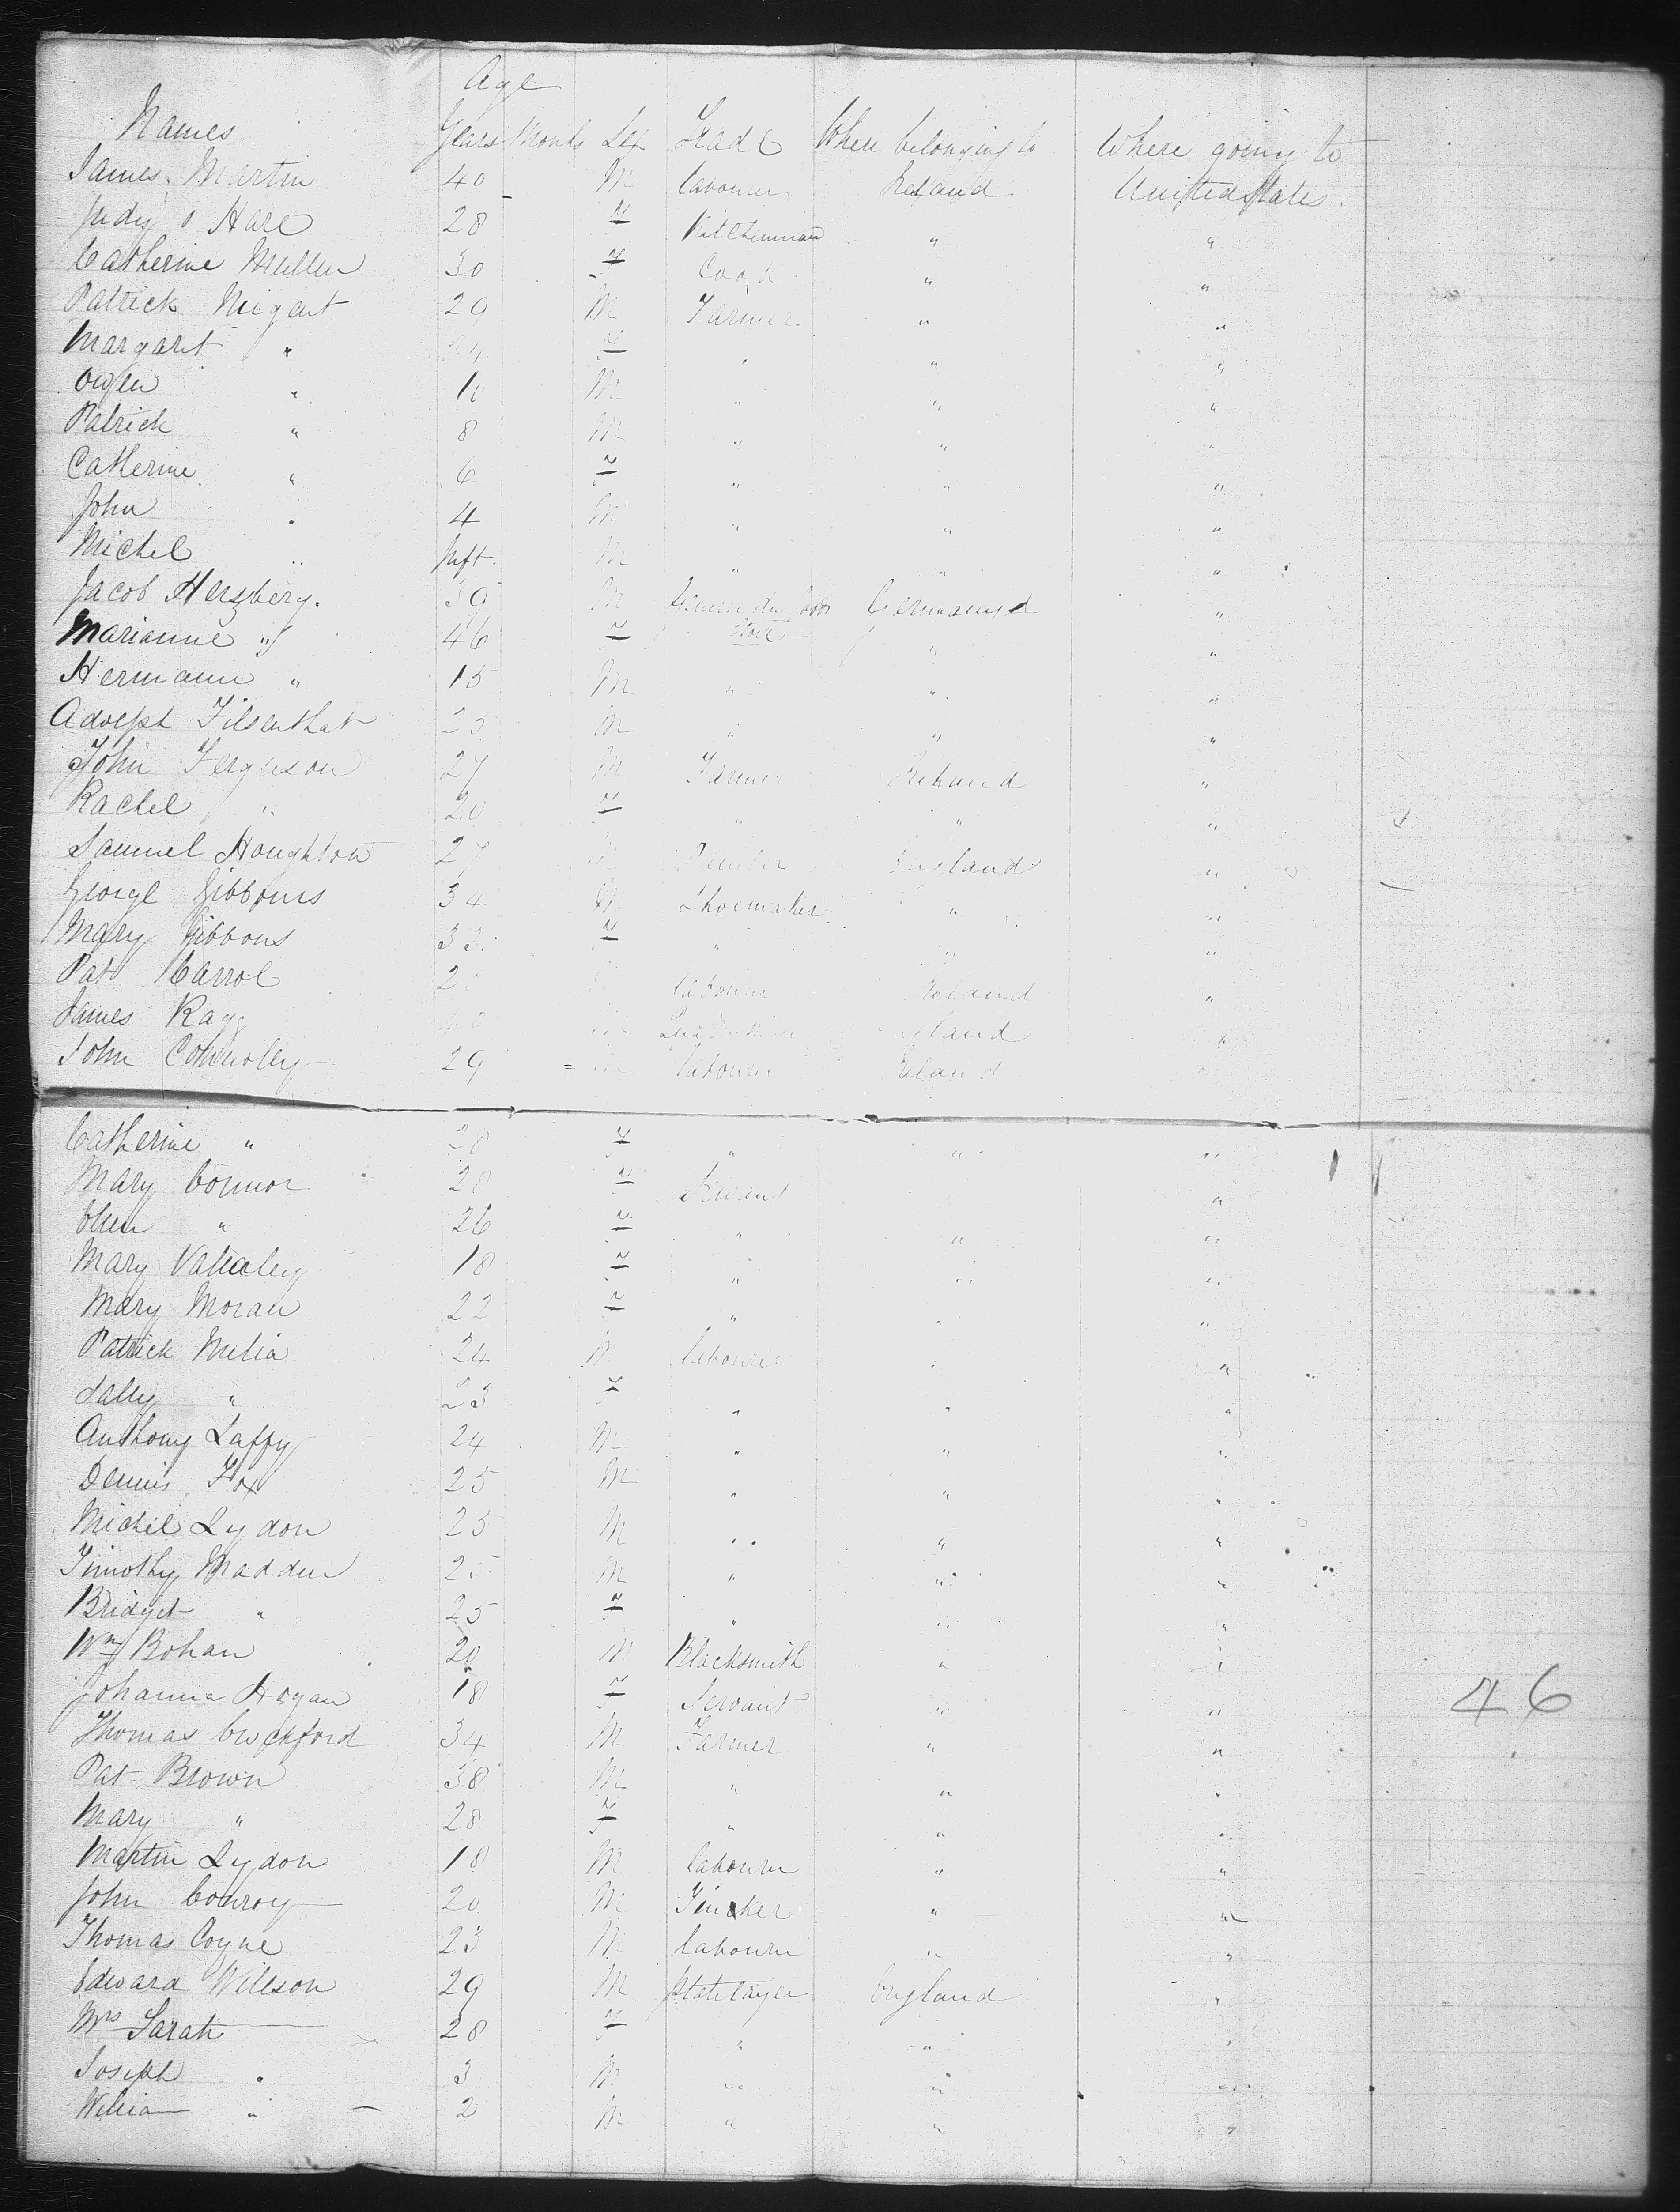 Age
Names Years Months Sex Trade Where belonging to Where going to
James Martin 40 - M labourer Ireland United States
Judy O Hare 28 F " "
Catherine Mullen 30 F Cook " "
Patrick 29 M Farmer " "
Margaret " F " " "
Owen " 10 M " " "
Patrick " 8 M " " "
Catherine " 6 F " " "
John " 4 M " " "
Michel " Inft. M " " "
Jacob Herzberg. 39 M Germany "
Marianne " 46 F " "
Hermann " 15 M " " "
Adolph Filsenthat M " " "
John Ferguson 27 M Farmer Ireland "
Rachel " 20 F " " "
Samuel Houghton 27 England "
George Gibbons 34 M Shoemaker " "
Mary Gibbons 33 F " " "
Pat Carrol labourer Ireland "
James M England "
John Connoley 29 M labourer Ireland "
Catherine " 28 F " " "
Mary Connor 28 F Servant "
Ellen " 26 F " " "
Mary 18 F " " "
Mary Moran 22 F " " "
Patrick Melia 24 M labourer " "
Sally " 23 F " " "
Anthony Laffy 24 M " " "
Dennis Fox 25 M " " "
Michel Lydon 25 M " " "
Timothy Madden 25 M " " "
Bridget " 25 F " " "
Wm Bohan 20 M Blacksmith " "
Johanna Hogan 18 F Servant " "
46
Thomas 34 M Farmer " "
Pat Brown 38 M " " "
Mary " 28 F " " "
Martin Lydon 18 M labourer " "
John Conroy 20 M " "
Thomas Coyne 23 M labourer " "
Edward Willson 29 M England "
Mrs Sarah 28 F " " "
Joseph " 3 M " " "
William " 2 M " " "